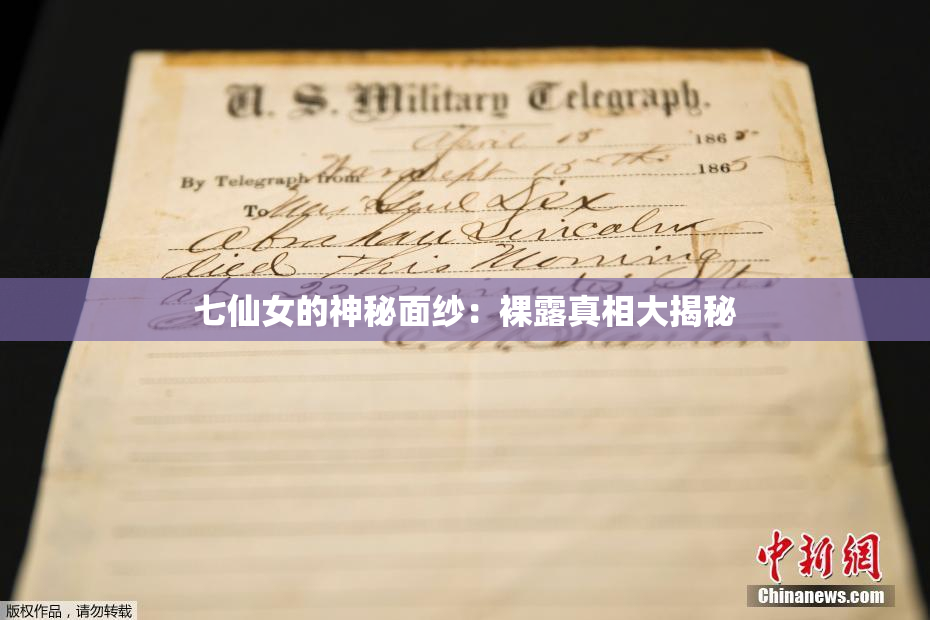 U. S. Military Telegraph.
April 15 1865
By Telegraph from War Dept 15th 1865
To Maj Genl Dix
Abraham Lincoln
died This Morning
at 22 minutes after
七仙女的神秘面纱：裸露真相大揭秘
E. M. Stanton
中新网
Chinanews.com
版权作品，请勿转载